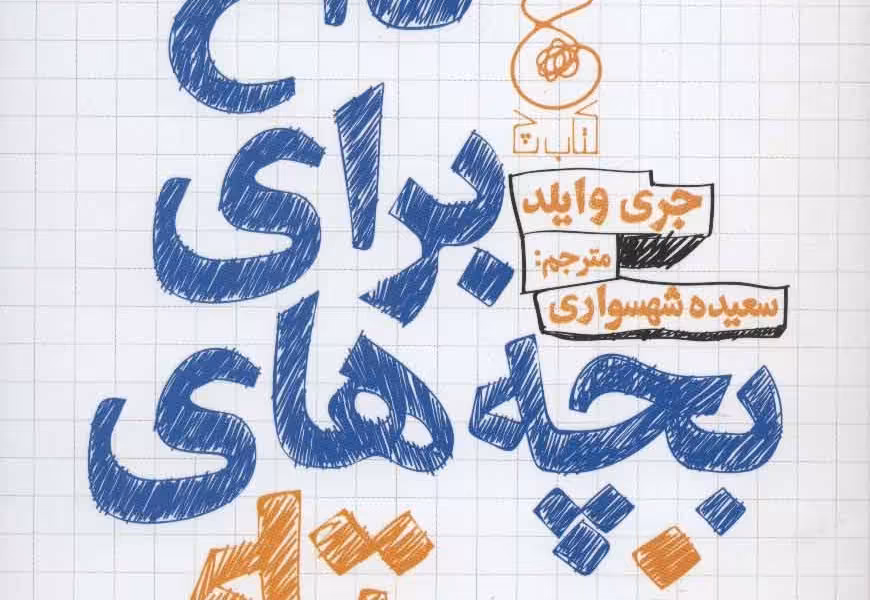 کتاب پ
برای
جری وایلد
مترجم:
سعیده شهسواری
بچه های